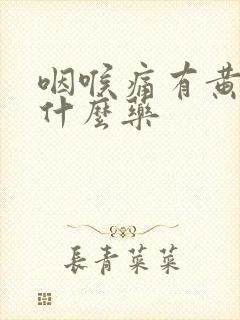 咽喉痛有黄
什麼藥
長青菜菜